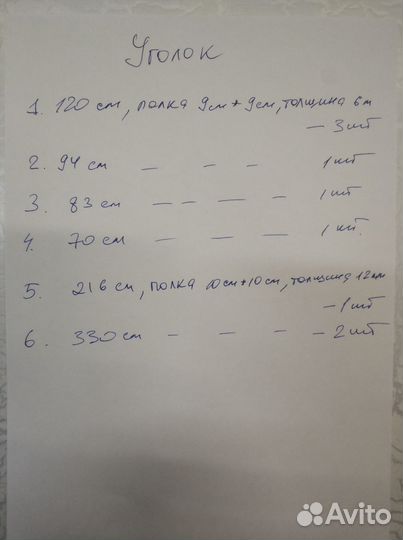 Уголок
1. 120 см, полка 9см+9см, толщина 6м
- 3 шт
2. 94 см — — — 1 шт
3. 83 см — — — — 1 шт
4. 70 см — — — 1 шт.
5. 216 см, полка 10см+10см, толщина 12мм
- 1 шт
6. 330 см — — — - 2 шт
Avito